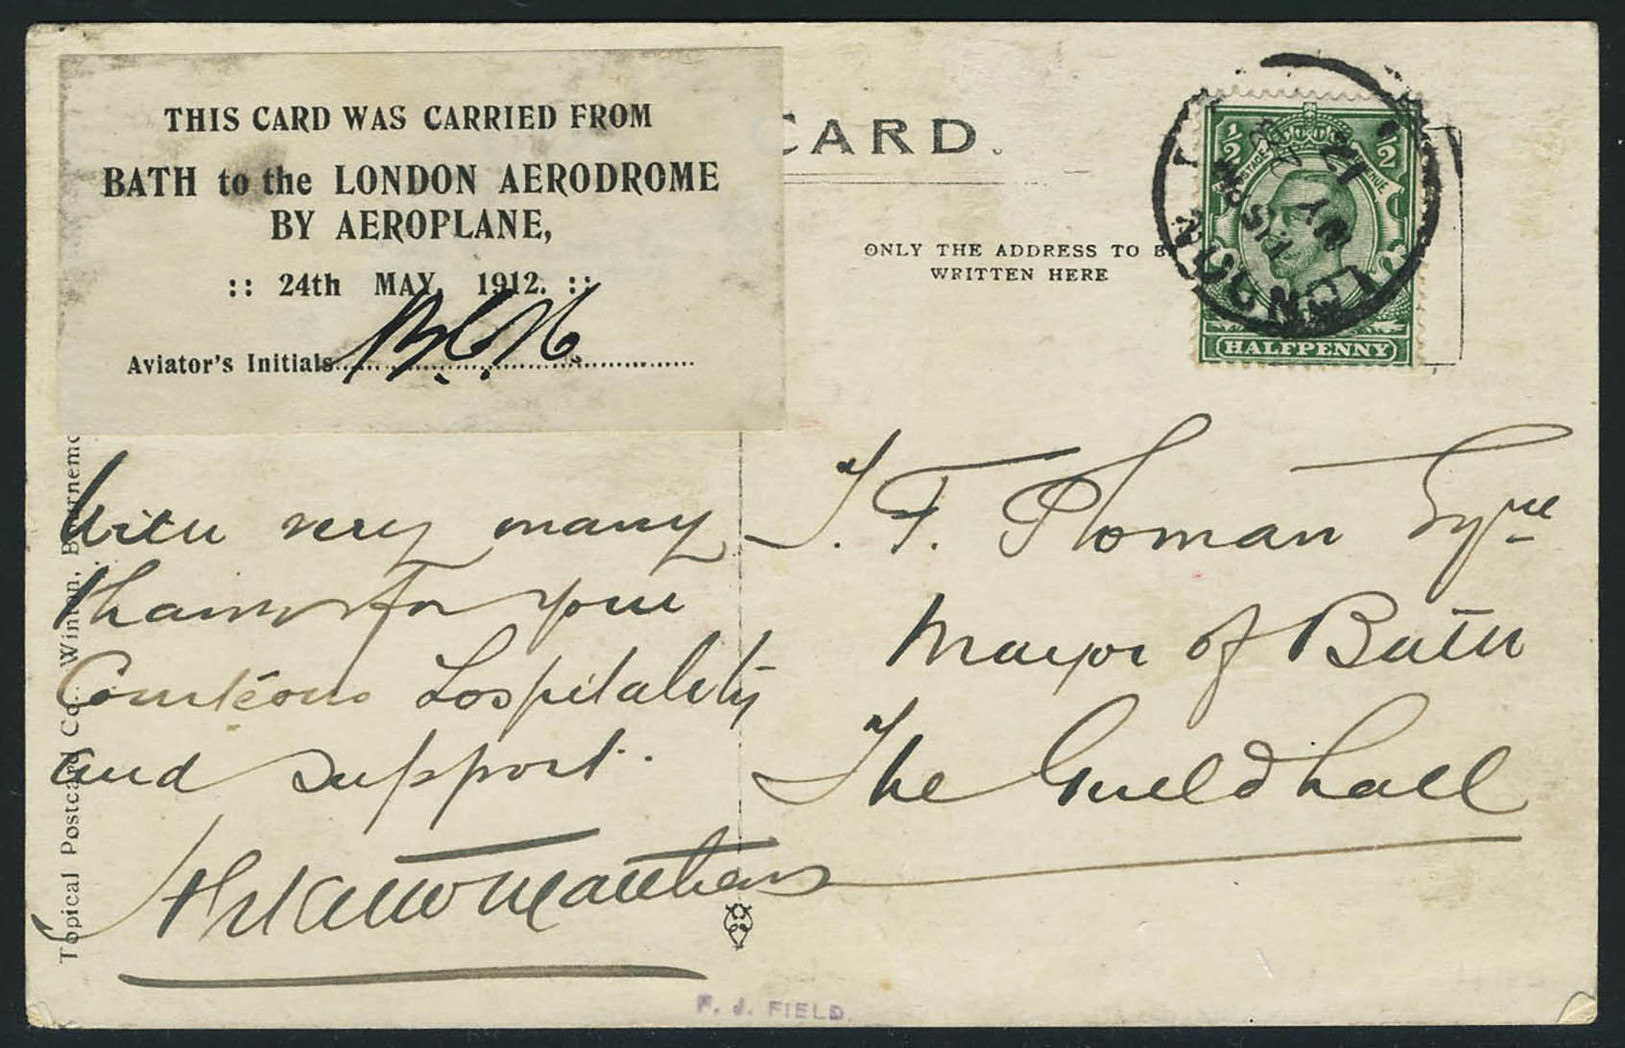 THIS CARD WAS CARRIED FROM
BATH to the LONDON AERODROME
BY AEROPLANE,
:: 24th MAY, 1912. ::
Aviator's Initials
CARD.
ONLY THE ADDRESS TO B
WRITTEN HERE
1/2 1/2
POSTAGE REVENUE
HALFPENNY
LONDON
MY
12
With very many
thanks for your
Courteous hospitality
and support.
Topical Postcard Co., Winton, Bournemo
F. Esqre
Mayor of Bath
The Guildhall
F. J. FIELD.